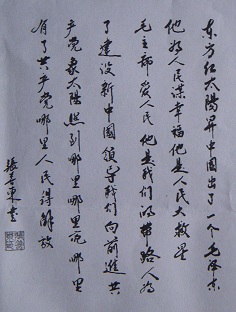 东方红太陽昇中國出了一个毛泽东
他为人民谋幸福他是人民大救星
毛主席爱人民他是我们的带路人为
了建设新中國领导我们向前進共
产党象太陽照到哪里哪里亮哪里
有了共产党哪里人民得解放